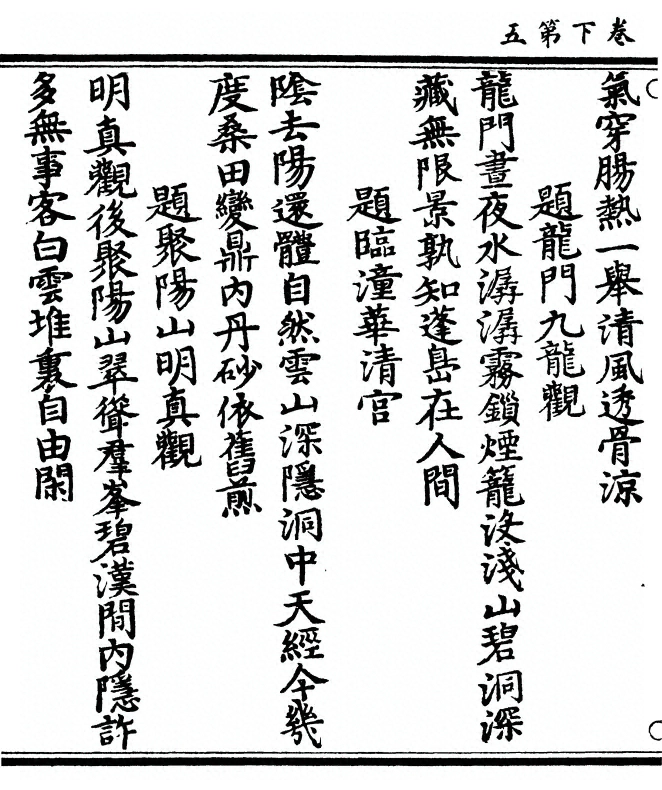 卷下第五
氣穿腸熱一舉清風透骨涼
題龍門九龍觀
龍門晝夜水潺潺霧鎖煙籠没淺山碧洞深
藏無限景孰知蓬島在人間
題臨潼華清宮
陰去陽還體自然雲山深隱洞中天經今幾
度桑田變鼎內丹砂依舊煎
題聚陽山明真觀
明真觀後聚陽山翠聳羣峯碧漢間內隱許
多無事客白雲堆裏自由閑